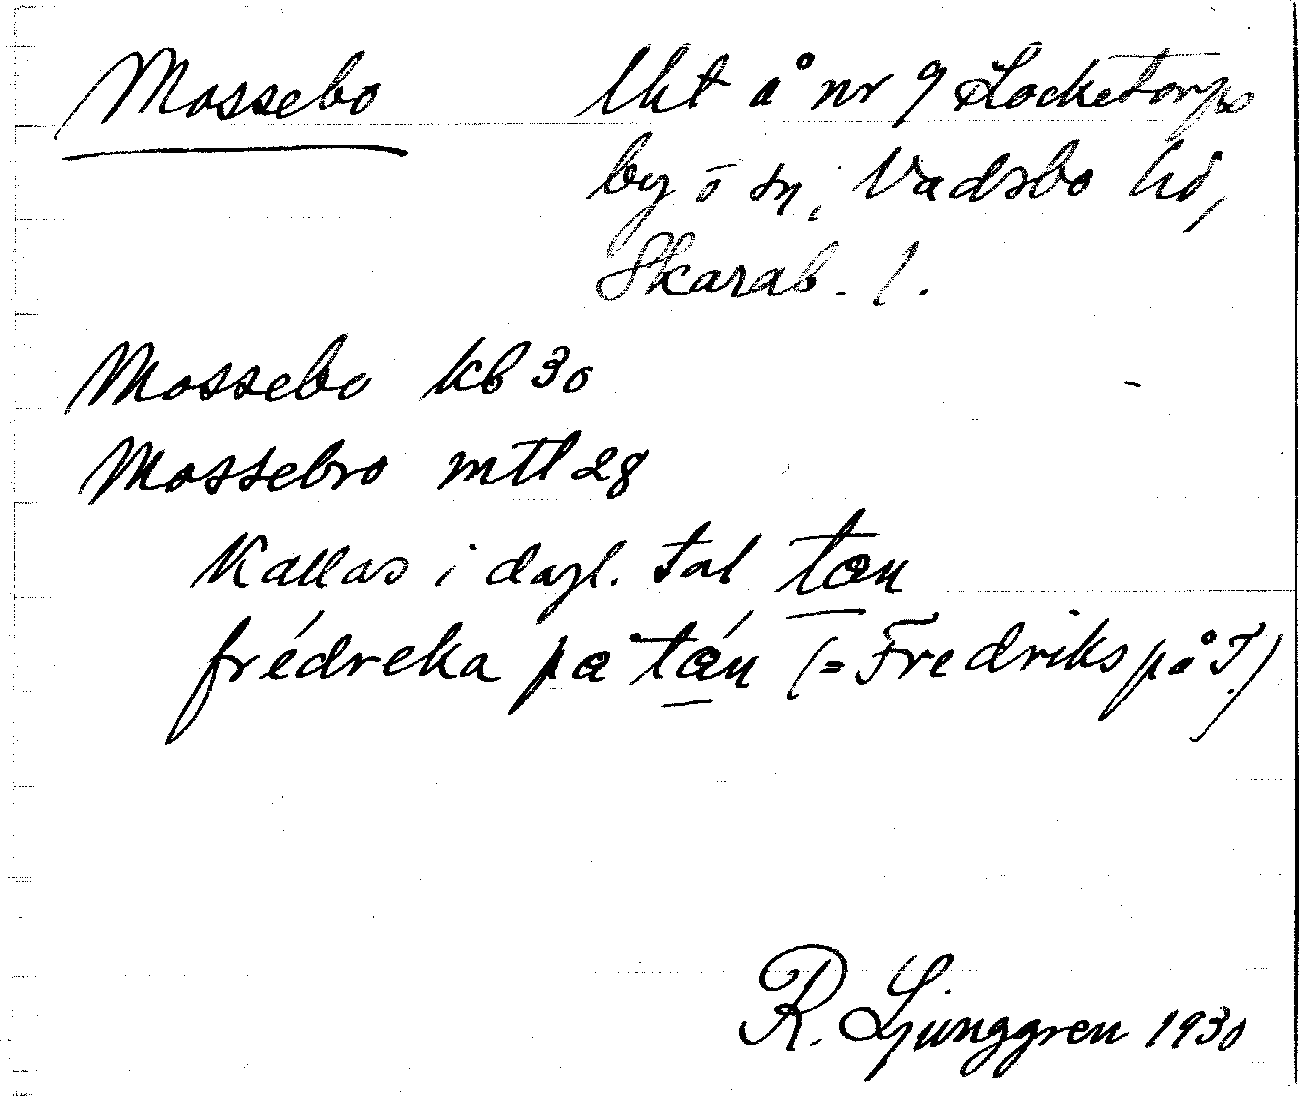 Mossebo lht å nr 9 Locketorps
by o sn, Vadsbo hd,
Skarab. l.
Mossebo kb 30
Mossebro mtl 28
Kallas i dagl. tal tœn
frédreka pœ tœ́n (= Fredriks på T.)
R. Ljunggren 1930